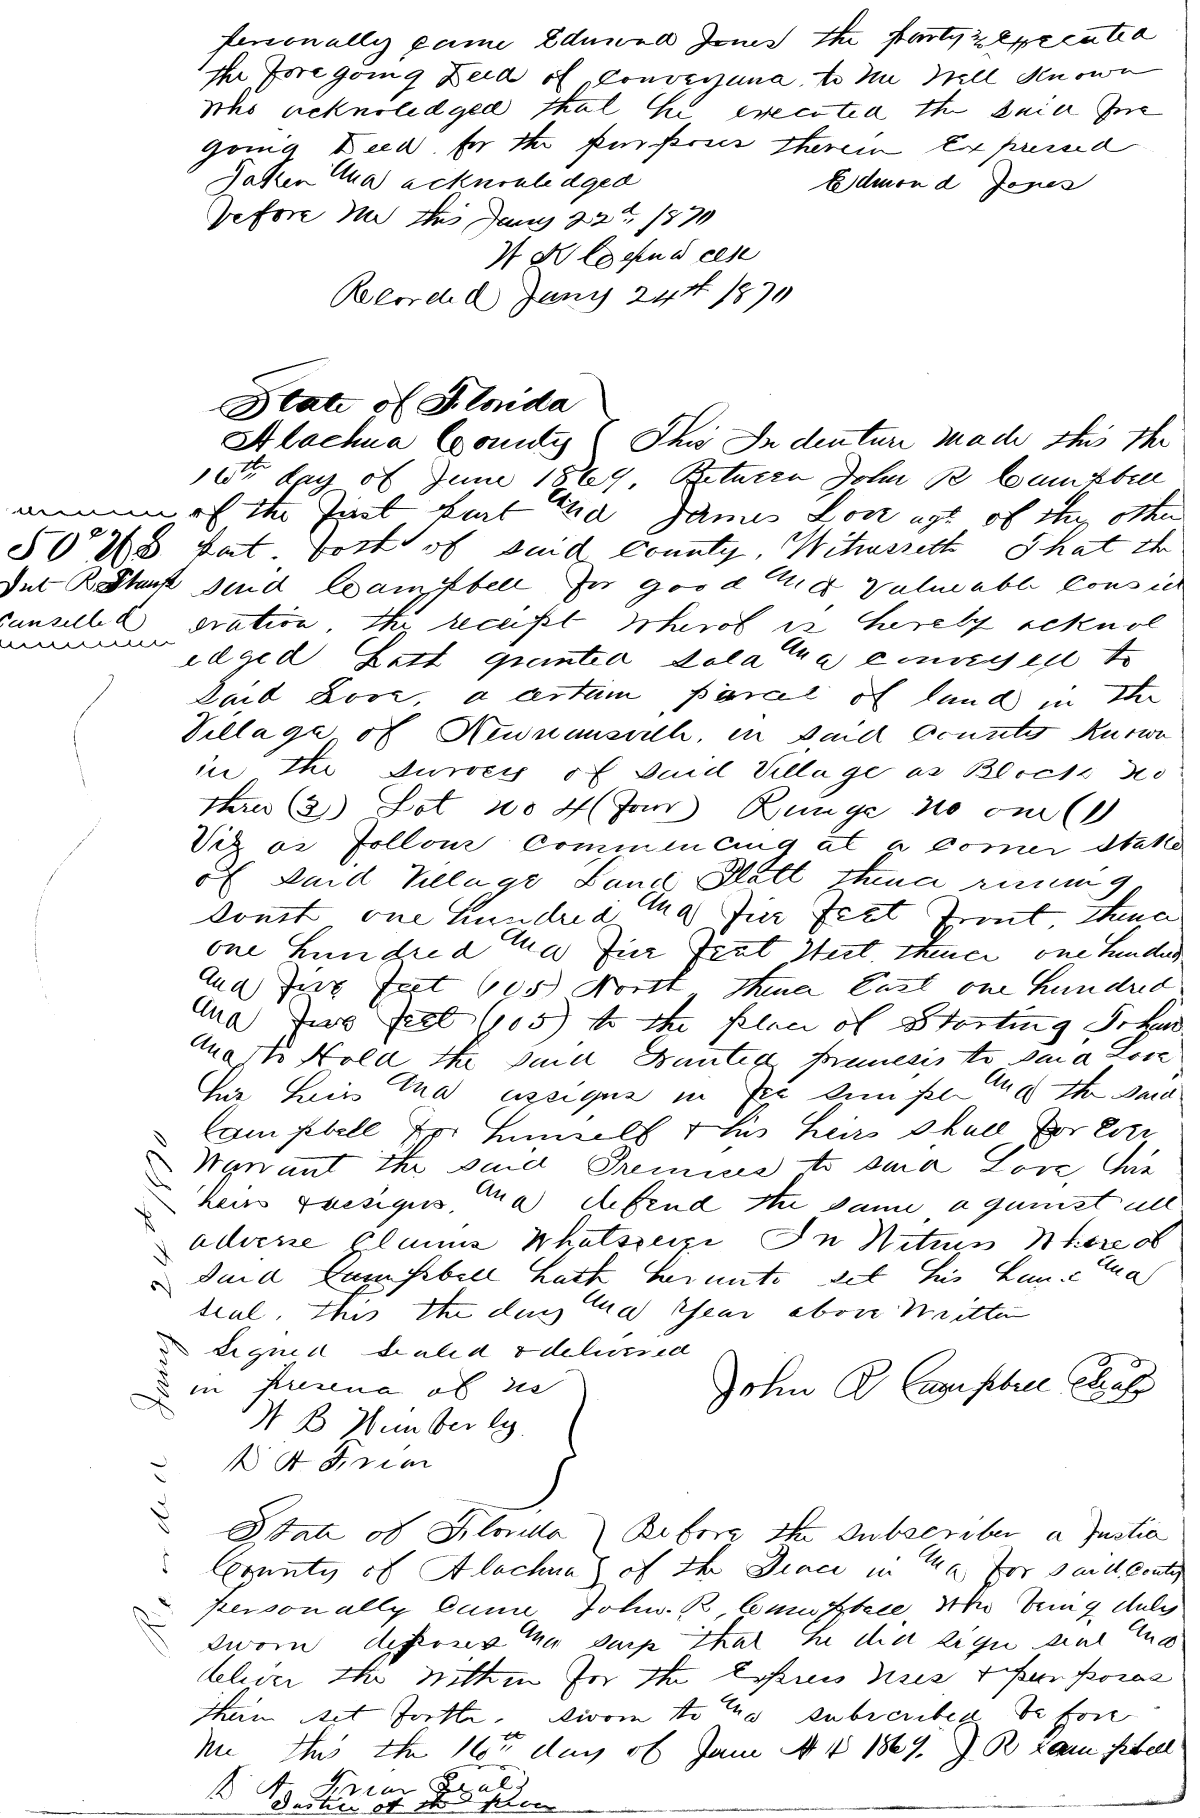 personally came Edmond Jones the party executed
the foregoing Deed of Conveyance to me Well Known
who acknoledged that he executed the said fore
going Deed for the purposes therein Expressed
Taken and acknowledged Edmond Jones
before me this Jany 22d 1870
Clk
Recorded Jany 24th 1870
State of Florida
Alachua County This Indenture made this the
16th day of June 1869, Between John R Campbell
of the First part and James Love agt of the other
part. both of said County, Witnesseth That th
said Campbell for good and Valuable Consid
eration, the receipt wherof is hereby acknol
edged hath granted sold and conveyed to
said Love, a certain parcel of land in the
Village of Newnansville, in said County Known
in the survey of said Village as Block no
three (3) Lot no 4 (four) Range no one (1)
Viz as follows commencing at a corner stake
of said Village Land Platt thence running
south one hundred and five feet front, thence
one hundred and five feet West, thence one hundred
and five feet (105) North, thence East one hundred
and five feet (105) to the place of Starting To have
and to Hold the said Granted premesis to said Love
his heirs and assigns in fee simple and the said
Campbell for himself & his heirs shall for Ever
Warrant the said Premises to said Love, his
heirs & assigns, and defend the same against all
adverse claims Whatsoever In Witness Whereof
said Campbell hath herunto set his hand and
seal, this the day and year above Written
Signed sealed & delivered
in presence of us John R Campbell Seal
W B Wimberly
D A Friar
State of Florida Before the subscriber a Justice
County of Alachua of the Peace in and for said County
personally came John. R, Campbell Who being duly
sworn deposes and says that he did sign seal and
deliver the within for the Express uses & purposes
therin set forth. sworn to and subscribed before
me this the 16th day of June A D 1869. J. R Campbell
D A Friar Seal
Justice of the peace
50 cts
Int R Stamp
Canselled
Recorded Jany 24th 1870